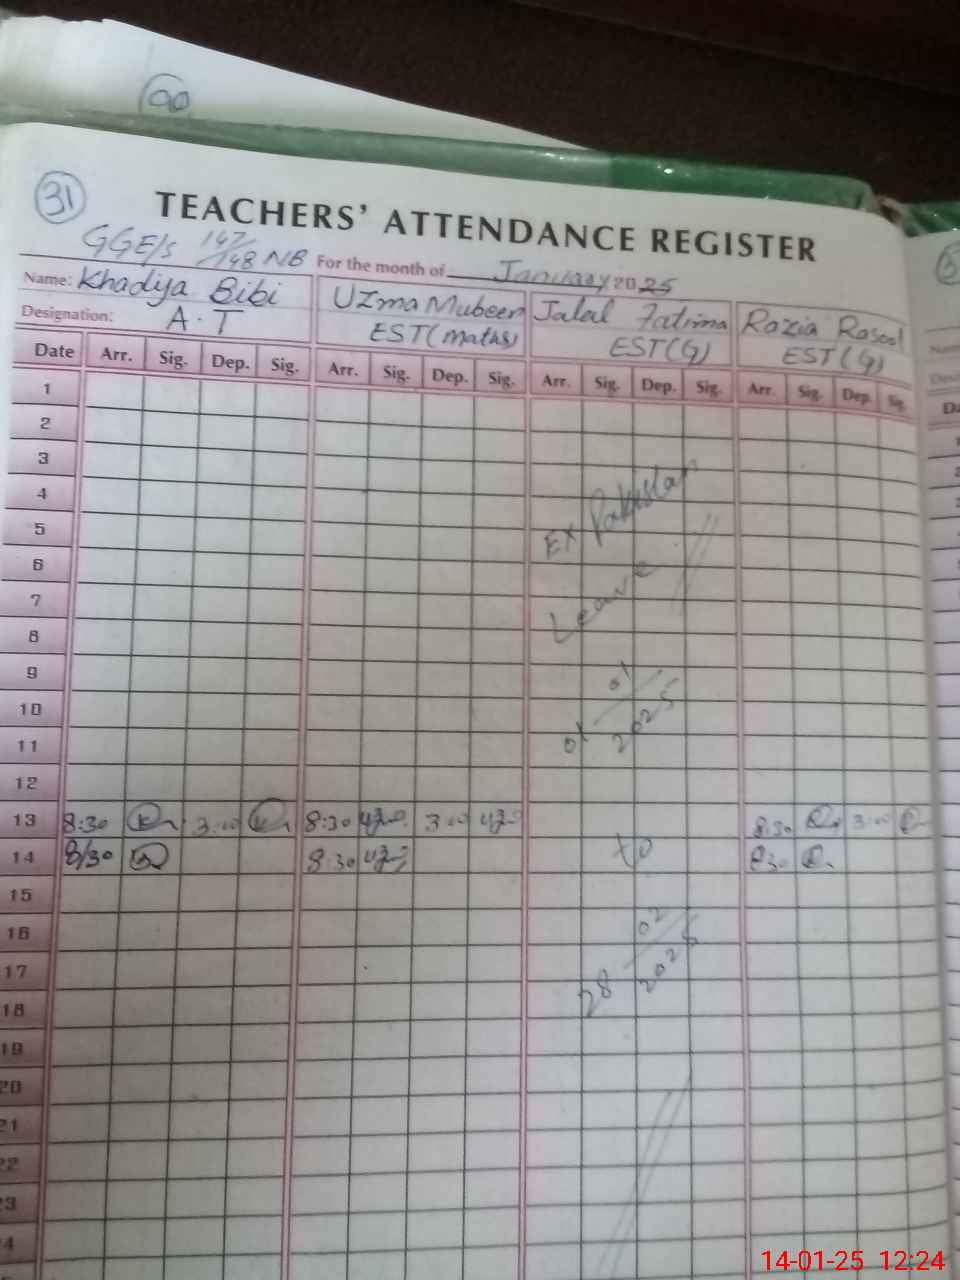 100
31
TEACHERS' ATTENDANCE REGISTER
GGE/S 147/148 NB For the month of January 2025
Name: Khadija Bibi Uzma Mubeen Jalal Fatima Razia Rasool
Designation: A.T EST(maths) EST(G) EST(G)
Date Arr. Sig. Dep. Sig. Arr. Sig. Dep. Sig. Arr. Sig. Dep. Sig. Arr. Sig. Dep. Sig.
1
2
3
4
5
6
7
8
9
10
11
12
13 8:30 3:00 8:30 3:00 8:30 3:00
14 8/30 8:30 830
15
16
17
18
19
20
21
22
23
24
Ex Pakistan
Leave
01/01/2025
to
28/02/2025
14-01-25 12:24